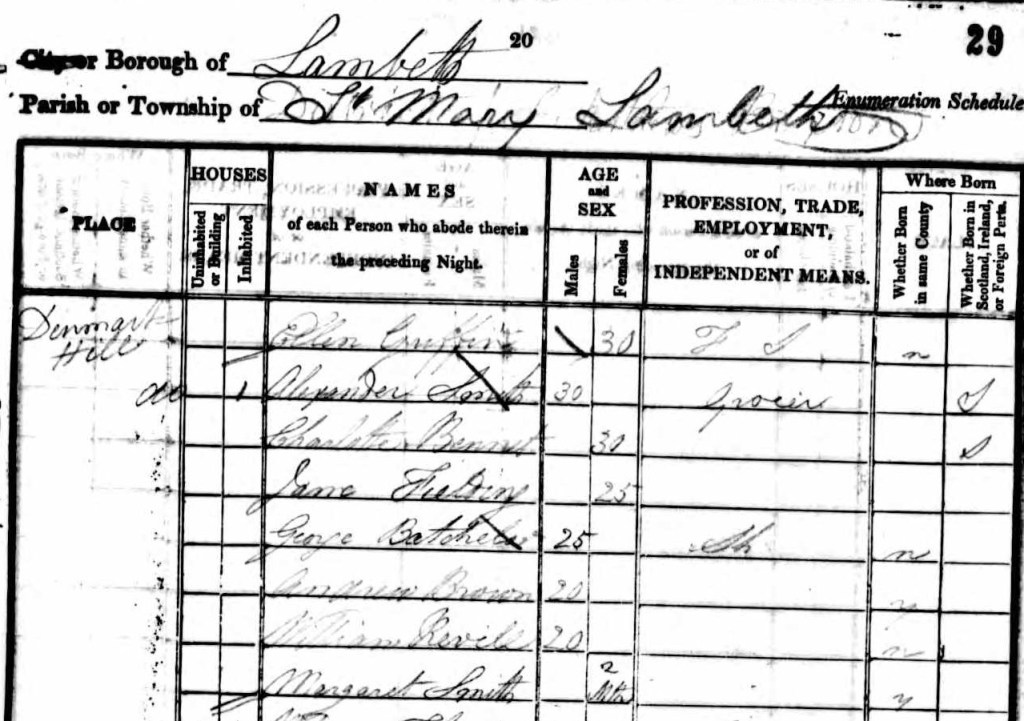 20
29
City or Borough of Lambeth
Parish or Township of St Mary Lambeth
Enumeration Schedule
PLACE
HOUSES
Uninhabited or Building
Inhabited
NAMES
of each Person who abode therein
the preceding Night.
AGE
and
SEX
Males
Females
PROFESSION, TRADE,
EMPLOYMENT,
or of
INDEPENDENT MEANS.
Where Born
Whether Born in same County
Whether Born in Scotland, Ireland, or Foreign Parts.
Denmark Hill Ellen Griffin 30 F S n
do 1 Alexander Smith 30 Grocer S
Charlotte Bennet 30 S
Jane Fielding 25
George Batchelor 25 Sh n
Andrew Brown 20 y
William Revill 20 n
Margaret Smith 2 Mths y